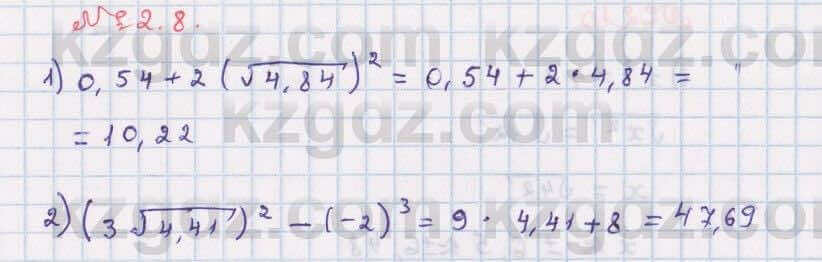 № 2.8.
1) 0,54 + 2 (√4,84)² = 0,54 + 2 · 4,84 =
= 10,22
2) (3 √4,41)² − (−2)³ = 9 · 4,41 + 8 = 47,69
kzgdz.com